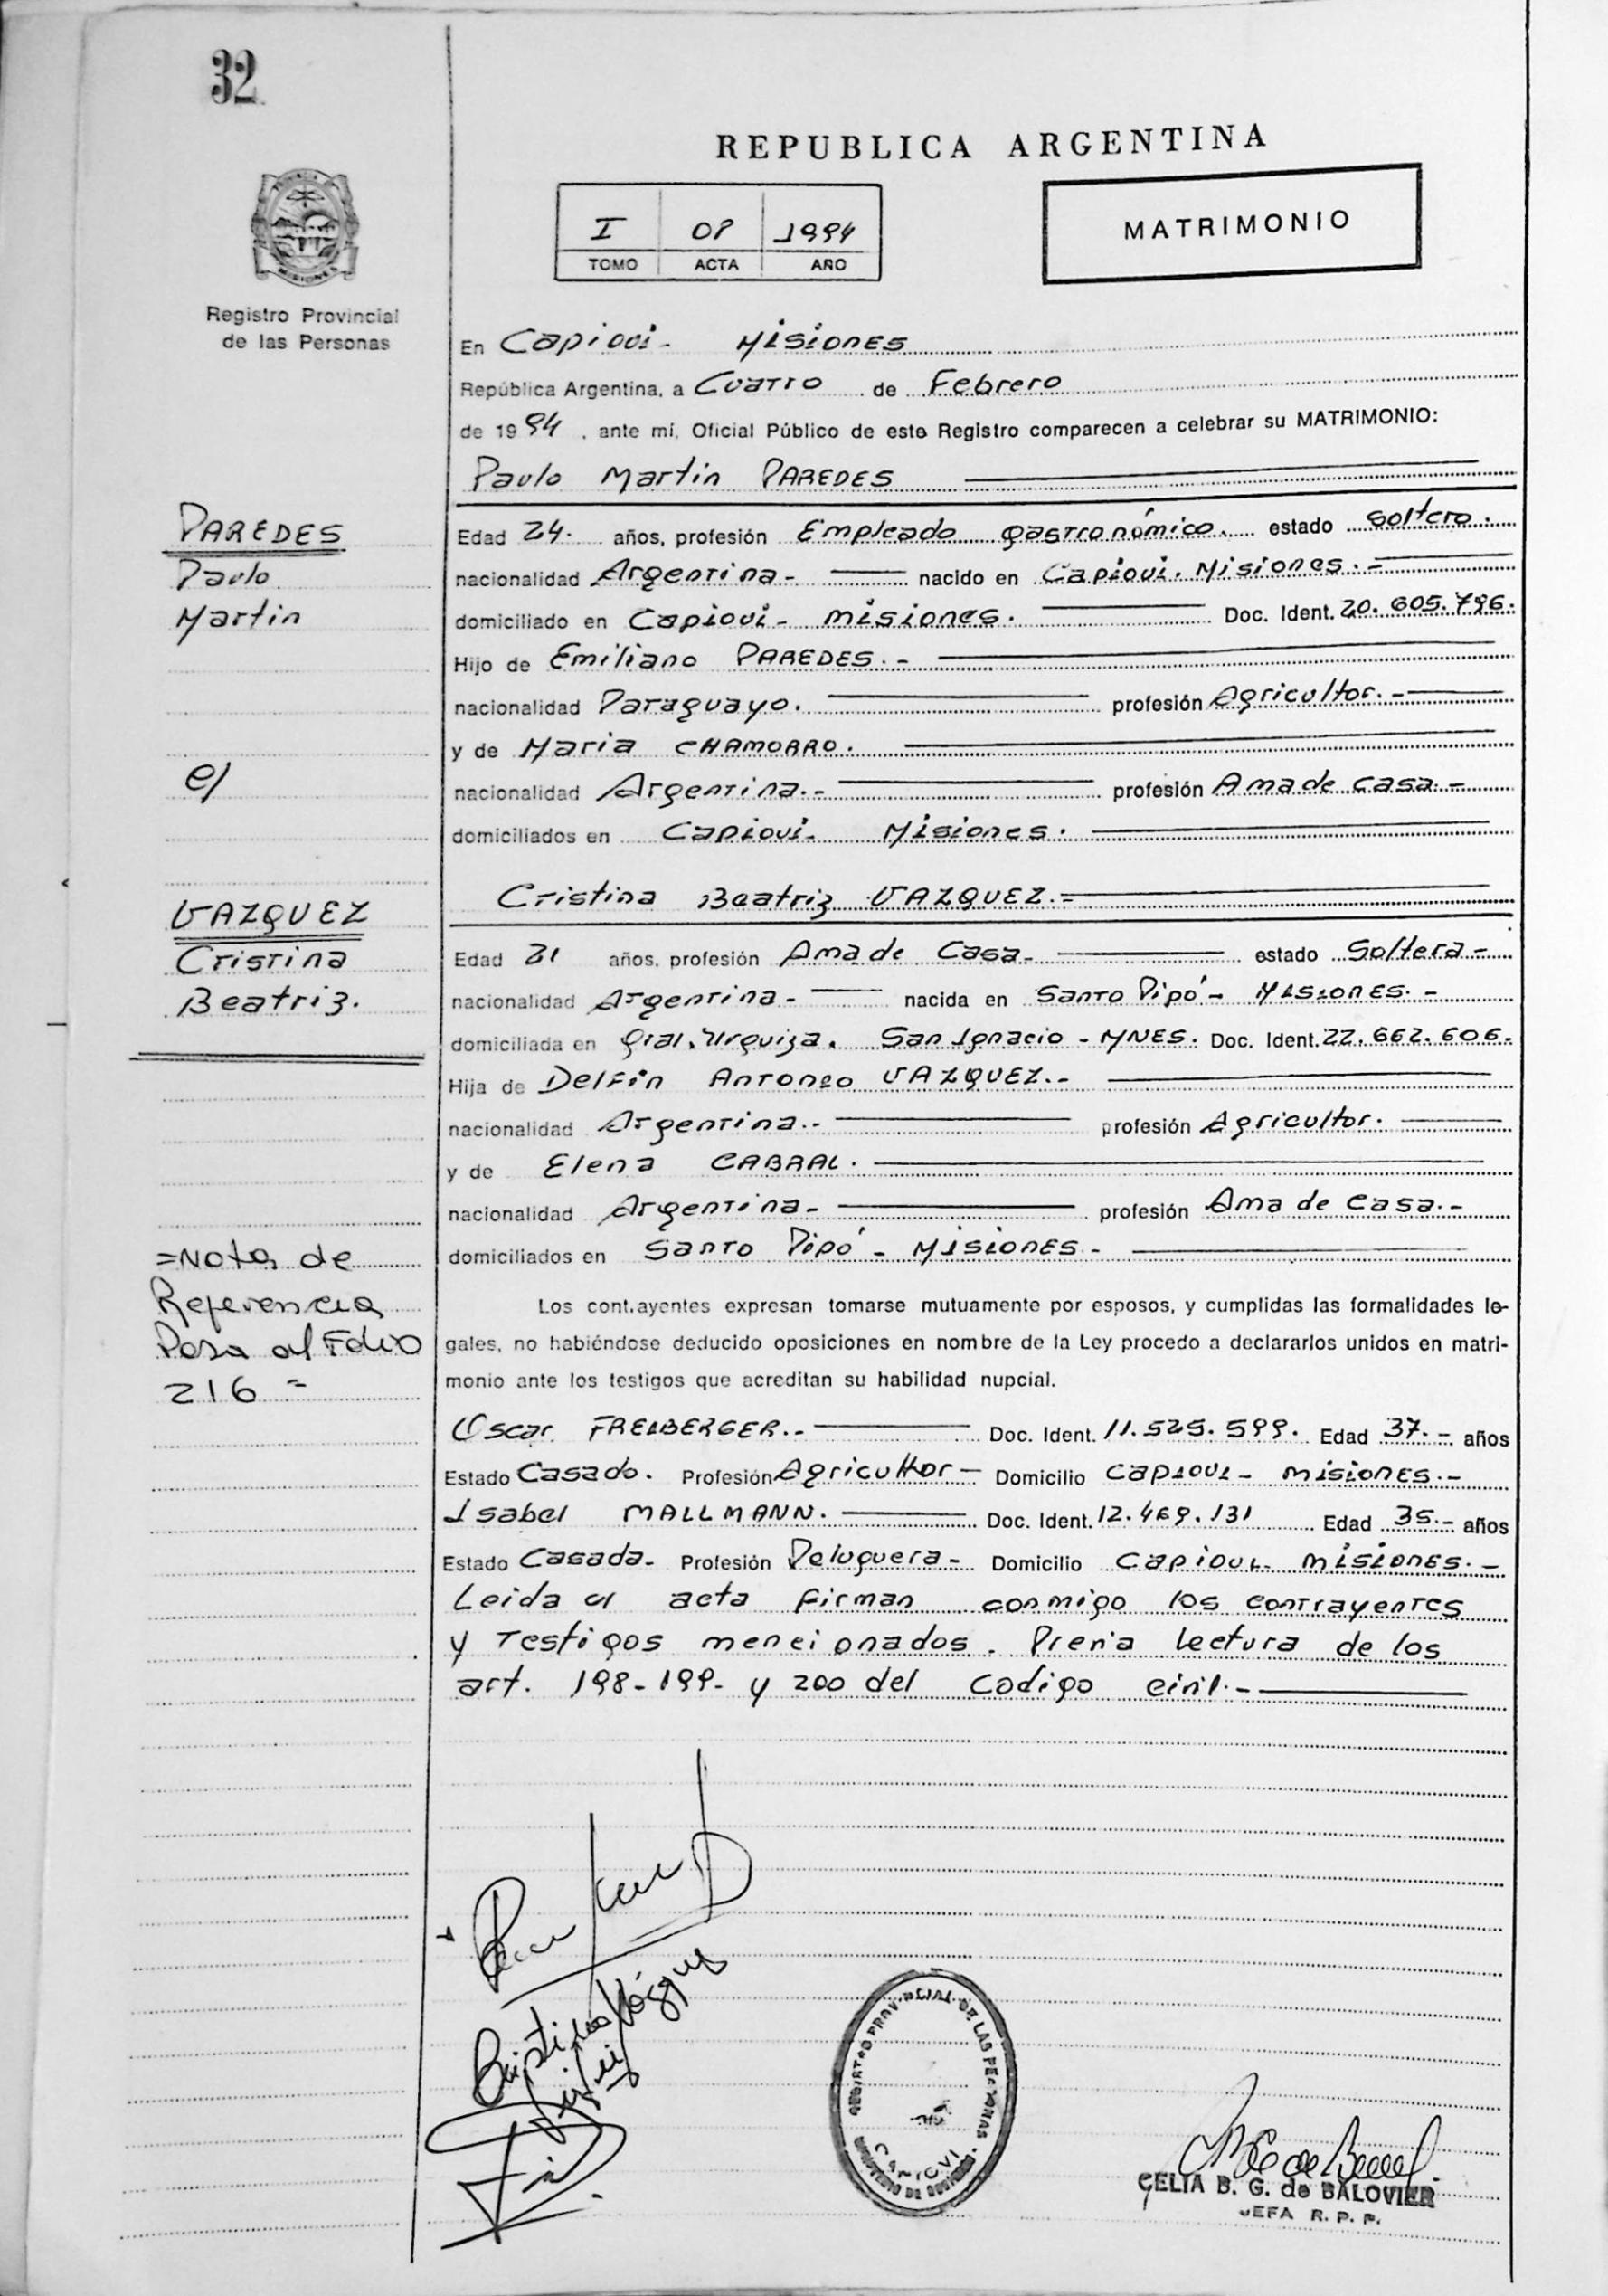 32
REPUBLICA ARGENTINA
I 09 1994
TOMO ACTA AÑO
MATRIMONIO
Registro Provincial
de las Personas
En Capioví - Misiones
República Argentina, a Cuatro de Febrero
de 1994, ante mí, Oficial Público de este Registro comparecen a celebrar su MATRIMONIO:
Paulo Martin PAREDES
PAREDES
Paulo
Martin
Edad 24. años, profesión Empleado gastronómico. estado Soltero.
nacionalidad Argentina - nacido en Capiovi. Misiones. -
domiciliado en Capiovi - misiones. Doc. Ident. 20.605.796.
Hijo de Emiliano PAREDES. -
nacionalidad Paraguayo. profesión Agricultor. -
y de Maria CHAMORRO.
e/
nacionalidad Argentina. - profesión Ama de casa. -
domiciliados en Capiovi - Misiones.
Cristina Beatriz VAZQUEZ. -
VAZQUEZ
Cristina
Beatriz.
Edad 21 años, profesión Ama de Casa - estado Soltera -
nacionalidad Argentina - nacida en Santo Pipó - Misiones. -
domiciliada en Gral. Urquiza. San Ignacio - MNES. Doc. Ident. 22.662.606.
Hija de Delfin Antonio VAZQUEZ. -
nacionalidad Argentina. - profesión Agricultor.
y de Elena CABRAL.
nacionalidad Argentina - profesión Ama de Casa. -
domiciliados en Santo Pipó - Misiones -
=Nota de
Referencia
Pasa al Folio
216 =
Los contrayentes expresan tomarse mutuamente por esposos, y cumplidas las formalidades le-
gales, no habiéndose deducido oposiciones en nombre de la Ley procedo a declararlos unidos en matri-
monio ante los testigos que acreditan su habilidad nupcial.
Oscar FREIBERGER. - Doc. Ident. 11.525.599. Edad 37. - años
Estado Casado. Profesión Agricultor - Domicilio Capiovi - misiones. -
Isabel MALLMANN. Doc. Ident. 12.469.131 Edad 35. - años
Estado Casada - Profesión Peluquera - Domicilio Capiovi - misiones. -
Leida el acta firman conmigo los contrayentes
y Testigos mencionados. Previa lectura de los
art. 198 - 199 - y 200 del Codigo civil. -
Cristina Vázquez
REGISTRO PROVINCIAL DE LAS PERSONAS
CAPIOVI
MINISTERIO DE GOBIERNO
CELIA B. G. de BALOVIER
JEFA R. P. P.